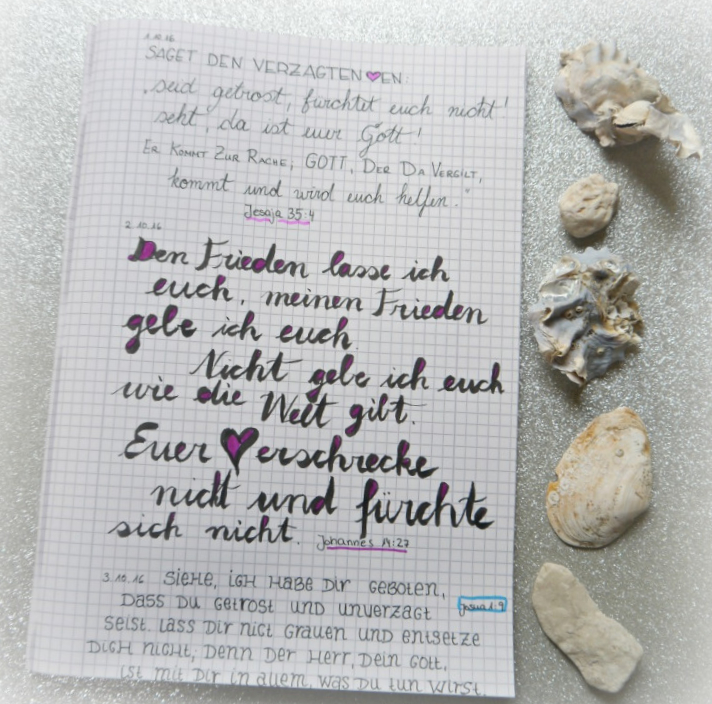 1.10.16
SAGET DEN VERZAGTEN ♥EN:
„seid getrost, fürchtet euch nicht!
seht, da ist euer Gott!
ER KOMMT ZUR RACHE, GOTT, DER DA VERGILT,
kommt und wird euch helfen."
Jesaja 35:4
2.10.16
Den Frieden lasse ich
euch, meinen Frieden
gebe ich euch.
Nicht gebe ich euch
wie die Welt gibt.
Euer ♥ erschrecke
nicht und fürchte
sich nicht. Johannes 14:27
3.10.16 SIEHE, ICH HABE DIR GEBOTEN,
DASS DU GETROST UND UNVERZAGT Josua 1:9
SEIST. LASS DIR NICT GRAUEN UND ENTSETZE
DICH NICHT, DENN DER HERR, DEIN GOTT,
IST MIT DIR IN ALLEM, WAS DU TUN WIRST.